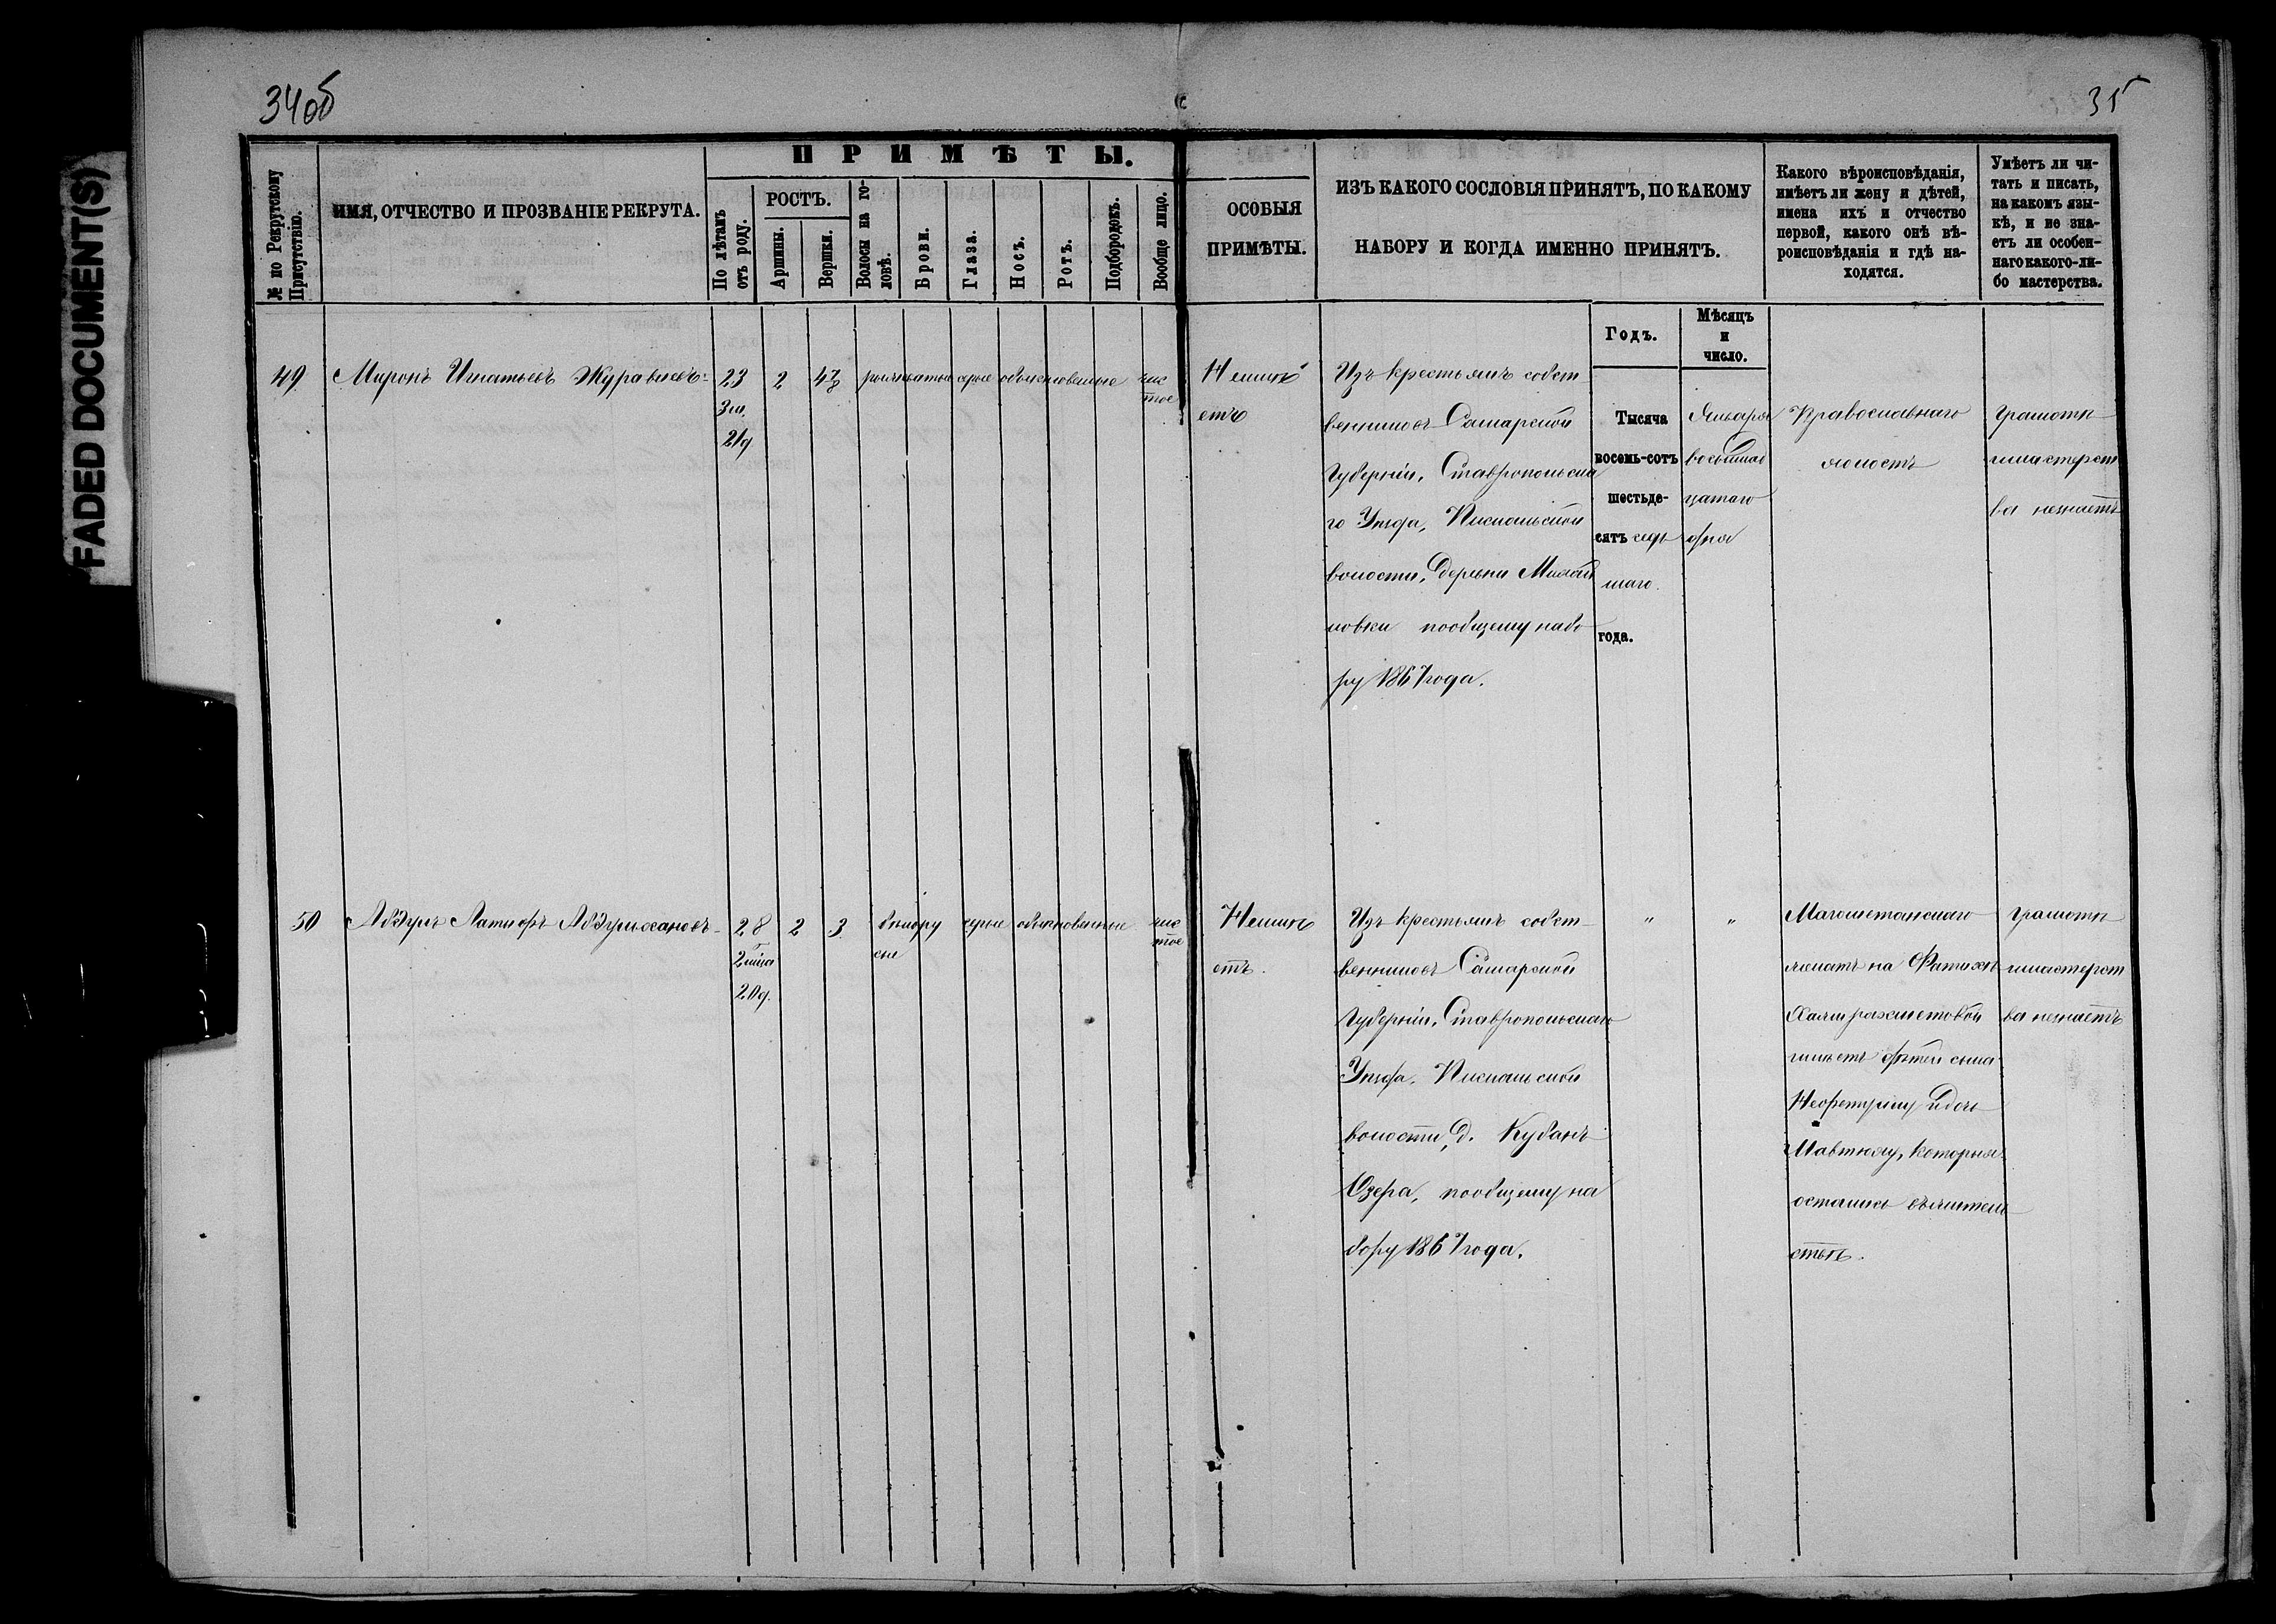 34об
35
FADED DOCUMENT(S)
ПРИМѢТЫ.
№ по Рекрутскому
Присутствію.
ИМЯ, ОТЧЕСТВО И ПРОЗВАНІЕ РЕКРУТА.
По лѣтамъ
отъ роду.
РОСТЪ.
Аршины.
Вершки.
Волосы на го-
ловѣ.
Брови.
Глаза.
Носъ.
Ротъ.
Подбородокъ.
Вообще лицо.
ОСОБЫЯ
ПРИМѢТЫ.
ИЗЪ КАКОГО СОСЛОВІЯ ПРИНЯТЪ, ПО КАКОМУ
НАБОРУ И КОГДА ИМЕННО ПРИНЯТЪ.
Какого вѣроисповѣданія,
имѣетъ ли жену и дѣтей,
имена ихъ и отчество
первой, какого онѣ вѣ-
роисповѣданія и гдѣ на-
ходятся.
Умѣетъ ли чи-
тать и писать,
на какомъ язы-
кѣ, и не зна-
етъ ли особен-
наго какого-ли-
бо мастерства.
Годъ.
Мѣсяцъ
и
число.
49
Миронъ Игнатьевъ Журавлевъ
23
3 м.
21 д.
2
4 7/8
рыжеватые
сѣрые
обыкновенные
чис
тое
Неимѣ
етъ
Изъ крестьянъ собст
венниковъ Самарской
Губерніи, Ставропольска
го Уѣзда,
волости, Деревни
новки пообщему набо
ру 1867 года.
Тысяча
восемь-сотъ
шестьде-
сятъ седь
маго
года.
Января
восемнад
цатаго
дня
Православнаго
холостъ
Грамоты
имастерст
ва незнаетъ
50
Абдулъ Латифъ Абдулхановъ
28
2 м-ца
20 д.
2
3
бѣлору
сые
сѣрые
обыкновенные
чис
тое
Неимѣ
етъ.
Изъ крестьянъ собст
венниковъ Самарской
Губерніи, Ставропольскаго
Уѣзда,
волости, д. Кубанъ
Озера, пообщему на
бору 1867 года.
"
"
Магометанскаго
женатъ на Фатихѣ
имѣетъ дѣтей сына
и дочь
которыя
остались въ
ствѣ.
Грамоты
имастерст
ва незнаетъ